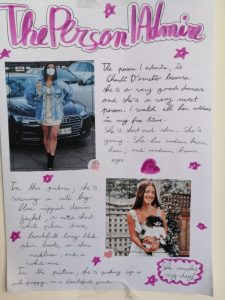 The Person I Admire
The person I admire, is
Charli D'amelio because
she's a very good dancer
and she's a very sweet
person. I watch all her videos
in my free time.
She is short and slim. She's
young. She has medium brown
hair, and medium brown
eyes.
In this picture, she's
wearing a cute big
blue ripped denim
jacket, a nice short
white dress,
beautiful long black
plain boots, an
necklace and a
white mask.
In the picture, she's picking up a
cute puppy in a beautiful garden.
She makes
my day!